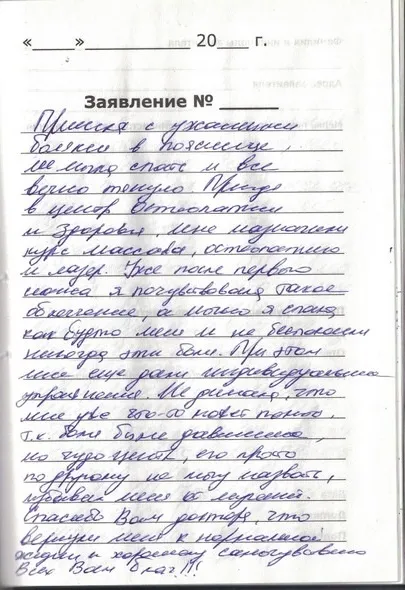 «____»____________ 20 ___ г.
Заявление № ______
Пришла с ужасными
болями в пояснице,
не могла спать и все
вечно тянуло. Придя
в центр Остеопатии
и Здоровья, мне назначили
курс массажа, остеопатию
и лазер. Уже после первого
сеанса я почувствовала такое
облегчение, а ночью я спала
как будто меня и не беспокоили
никогда эти боли. При этом
мне еще дали индивидуальные
упражнения. Не думала, что
мне уже что-то может помочь,
т.к. боли были давнишние,
но чудо центр, его просто
по другому не могу назвать,
избавил меня от мучений.
Спасибо Вам доктора, что
вернули меня к нормальной
жизни и хорошему самочувствию
Всех Вам благ!!!